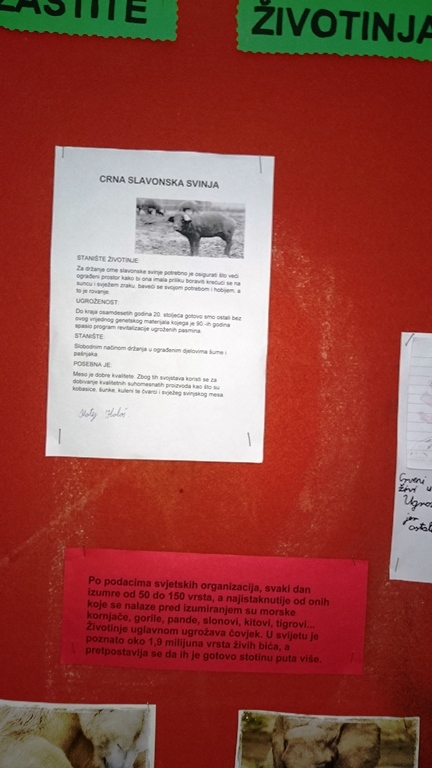 ZAŠTITE
ŽIVOTINJA
CRNA SLAVONSKA SVINJA
STANIŠTE ŽIVOTINJE:
Za držanje crne slavonske svinje potrebno je osigurati što veći
ograđeni prostor kako bi ona imala priliku boraviti krećući se na
suncu i svježem zraku, baveći se svojom potrebom i hobijem, a
to je rovanje.
UGROŽENOST:
Do kraja osamdesetih godina 20. stoljeća gotovo smo ostali bez
ovog vrijednog genetskog materijala kojega je 90.-ih godina
spasio program revitalizacije ugroženih pasmina.
STANIŠTE:
Slobodnim načinom držanja u ograđenim djelovima šume i
pašnjaka.
POSEBNA JE:
Meso je dobre kvalitete. Zbog tih svojstava koristi se za
dobivanje kvalitetnih suhomesnatih proizvoda kao što su
kobasice, šunke, kuleni te čvarci i svježeg svinjskog mesa
Crveni
živi u
Ugro
jer
Po podacima svjetskih organizacija, svaki dan
izumre od 50 do 150 vrsta, a najistaknutije od onih
koje se nalaze pred izumiranjem su morske
kornjače, gorile, pande, slonovi, kitovi, tigrovi...
Životinje uglavnom ugrožava čovjek. U svijetu je
poznato oko 1,9 milijuna vrsta živih bića, a
pretpostavlja se da ih je gotovo stotinu puta više.